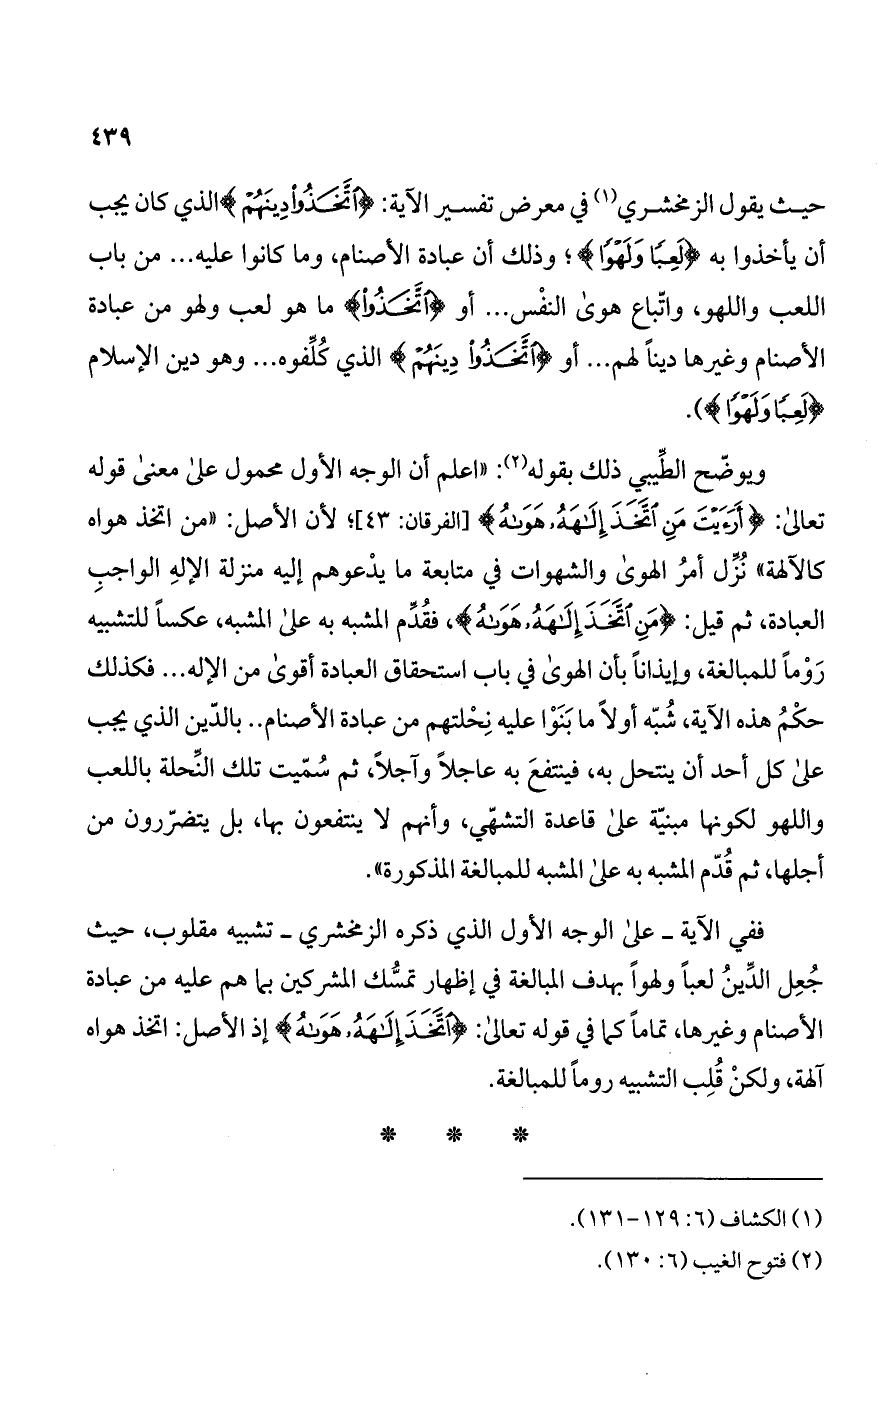 ٤٣٩
حيث يقول الزمخشري(١) في معرض تفسير الآية: ﴿ٱتَّخَذُوا۟ دِينَهُمْ﴾ الذي كان يجب
أن يأخذوا به ﴿لَعِبًا وَلَهْوًا﴾؛ وذلك أن عبادة الأصنام، وما كانوا عليه... من باب
اللعب واللهو، واتّباع هوىٰ النفْس... أو ﴿ٱتَّخَذُوا۟﴾ ما هو لعب ولهو من عبادة
الأصنام وغيرها ديناً لهم... أو ﴿ٱتَّخَذُوا۟ دِينَهُمْ﴾ الذي كُلِّفوه... وهو دين الإسلام
﴿لَعِبًا وَلَهْوًا﴾).
ويوضّح الطِّيبي ذلك بقوله(٢): «اعلم أن الوجه الأول محمول علىٰ معنىٰ قوله
تعالىٰ: ﴿أَرَءَيْتَ مَنِ ٱتَّخَذَ إِلَٰهَهُۥ هَوَىٰهُ﴾ [الفرقان: ٤٣]؛ لأن الأصل: «من اتخذ هواه
كالآلهة» نُزِّل أمرُ الهوىٰ والشهوات في متابعة ما يدْعوهم إليه منزلة الإلهِ الواجبِ
العبادة، ثم قيل: ﴿مَنِ ٱتَّخَذَ إِلَٰهَهُۥ هَوَىٰهُ﴾، فقُدِّم المشبه به علىٰ المشبه، عكساً للتشبيه
رَوْماً للمبالغة، وإيذاناً بأن الهوىٰ في باب استحقاق العبادة أقوىٰ من الإله... فكذلك
حكْمُ هذه الآية، شُبّه أولاً ما بَنَوْا عليه نِحْلتهم من عبادة الأصنام.. بالدّين الذي يجب
علىٰ كل أحد أن ينتحل به، فينتفعَ به عاجلاً وآجلاً، ثم سُمّيت تلك النِّحلة باللعب
واللهو لكونها مبنيّة علىٰ قاعدة التشهّي، وأنهم لا ينتفعون بها، بل يتضرّرون من
أجلها، ثم قُدّم المشبه به علىٰ المشبه للمبالغة المذكورة».
ففي الآية ـ علىٰ الوجه الأول الذي ذكره الزمخشري ـ تشبيه مقلوب، حيث
جُعِل الدِّينُ لعباً ولهواً بهدف المبالغة في إظهار تمسُّك المشركين بما هم عليه من عبادة
الأصنام وغيرها، تماماً كما في قوله تعالىٰ: ﴿ٱتَّخَذَ إِلَٰهَهُۥ هَوَىٰهُ﴾ إذ الأصل: اتخذ هواه
آلهة، ولكنْ قُلِب التشبيه روماً للمبالغة.
* * *
(١) الكشاف (٦: ١٢٩-١٣١).
(٢) فتوح الغيب (٦: ١٣٠).